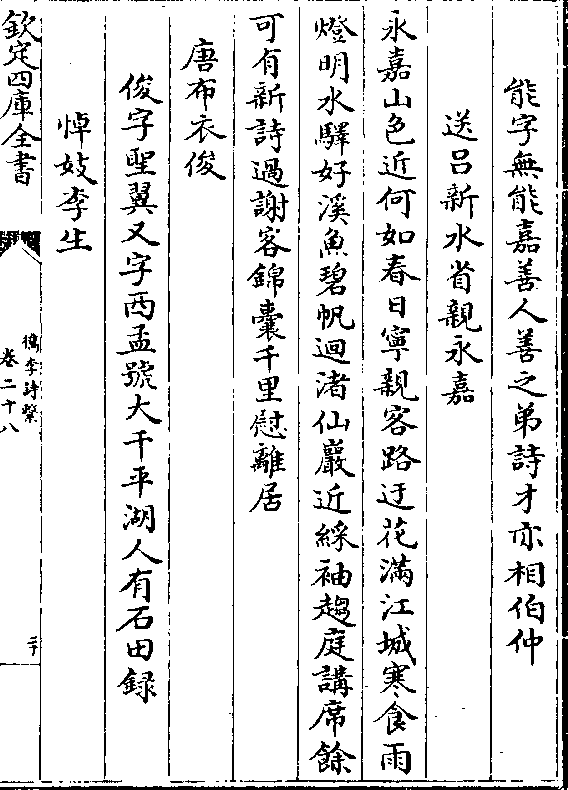 能字無能嘉善人善之弟詩才亦相伯仲
送呂新水省親永嘉
永嘉山色近何如春日寧親客路迂花滿江城寒食雨
燈明水驛好溪魚碧帆迴渚仙巖近綵袖趨庭講席餘
可有新詩過謝客錦囊千里慰離居
唐布衣俊
俊字聖翼又字西孟號大千平湖人有石田録
悼妓李生
欽定四庫全書
檇李詩繫
卷二十八